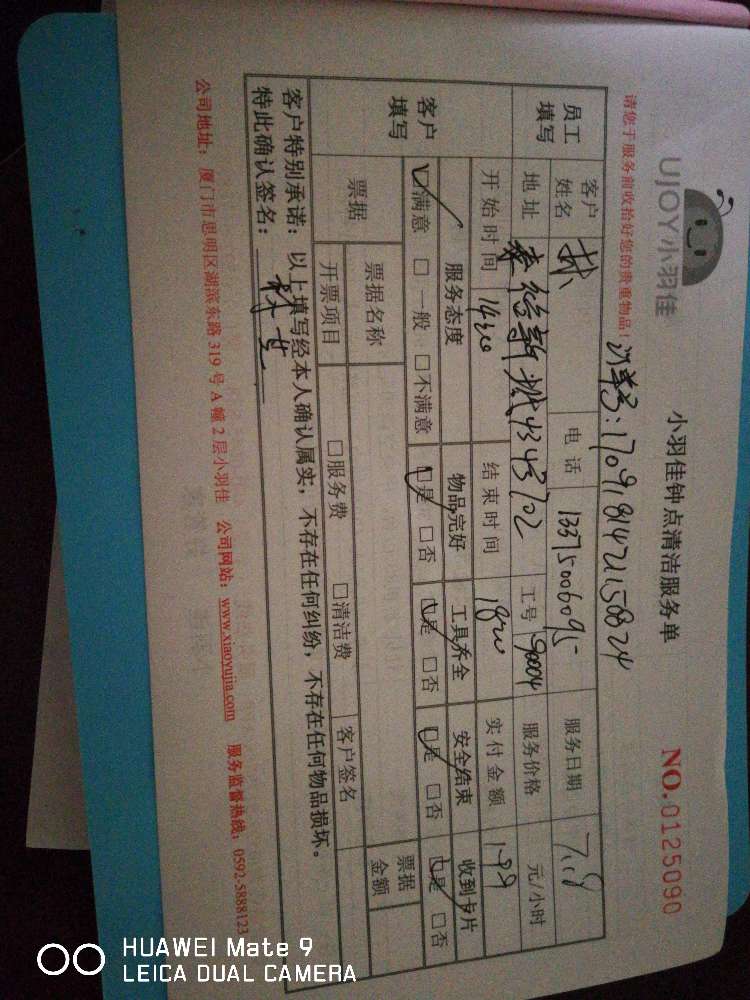 UJOY小羽佳
小羽佳钟点清洁服务单
NO.0125090
请您于服务前收拾好您的贵重物品!
订单号:17091814721150824
员工填写
客户姓名 林 电话 13375006095 服务日期 7.19
地址 4343702 工号 90004 服务价格 元/小时
开始时间 14:20 结束时间 1820 实付金额 199
客户填写
服务态度 物品完好 工具齐全 安全结束 收到卡片
☑满意 □一般 □不满意 ☑是 □否 ☑是 □否 ☑是 □否 ☑是 □否
票据 票据名称 票据金额
开票项目 □服务费 □清洁费 客户签名
客户特别承诺:以上填写经本人确认属实,不存在任何纠纷,不存在任何物品损坏。
特此确认签名:
公司地址:厦门市思明区湖滨东路319号A幢2层小羽佳 公司网站:www.xiaoyujia.com 服务监督热线:0592-5888123
HUAWEI Mate 9
LEICA DUAL CAMERA